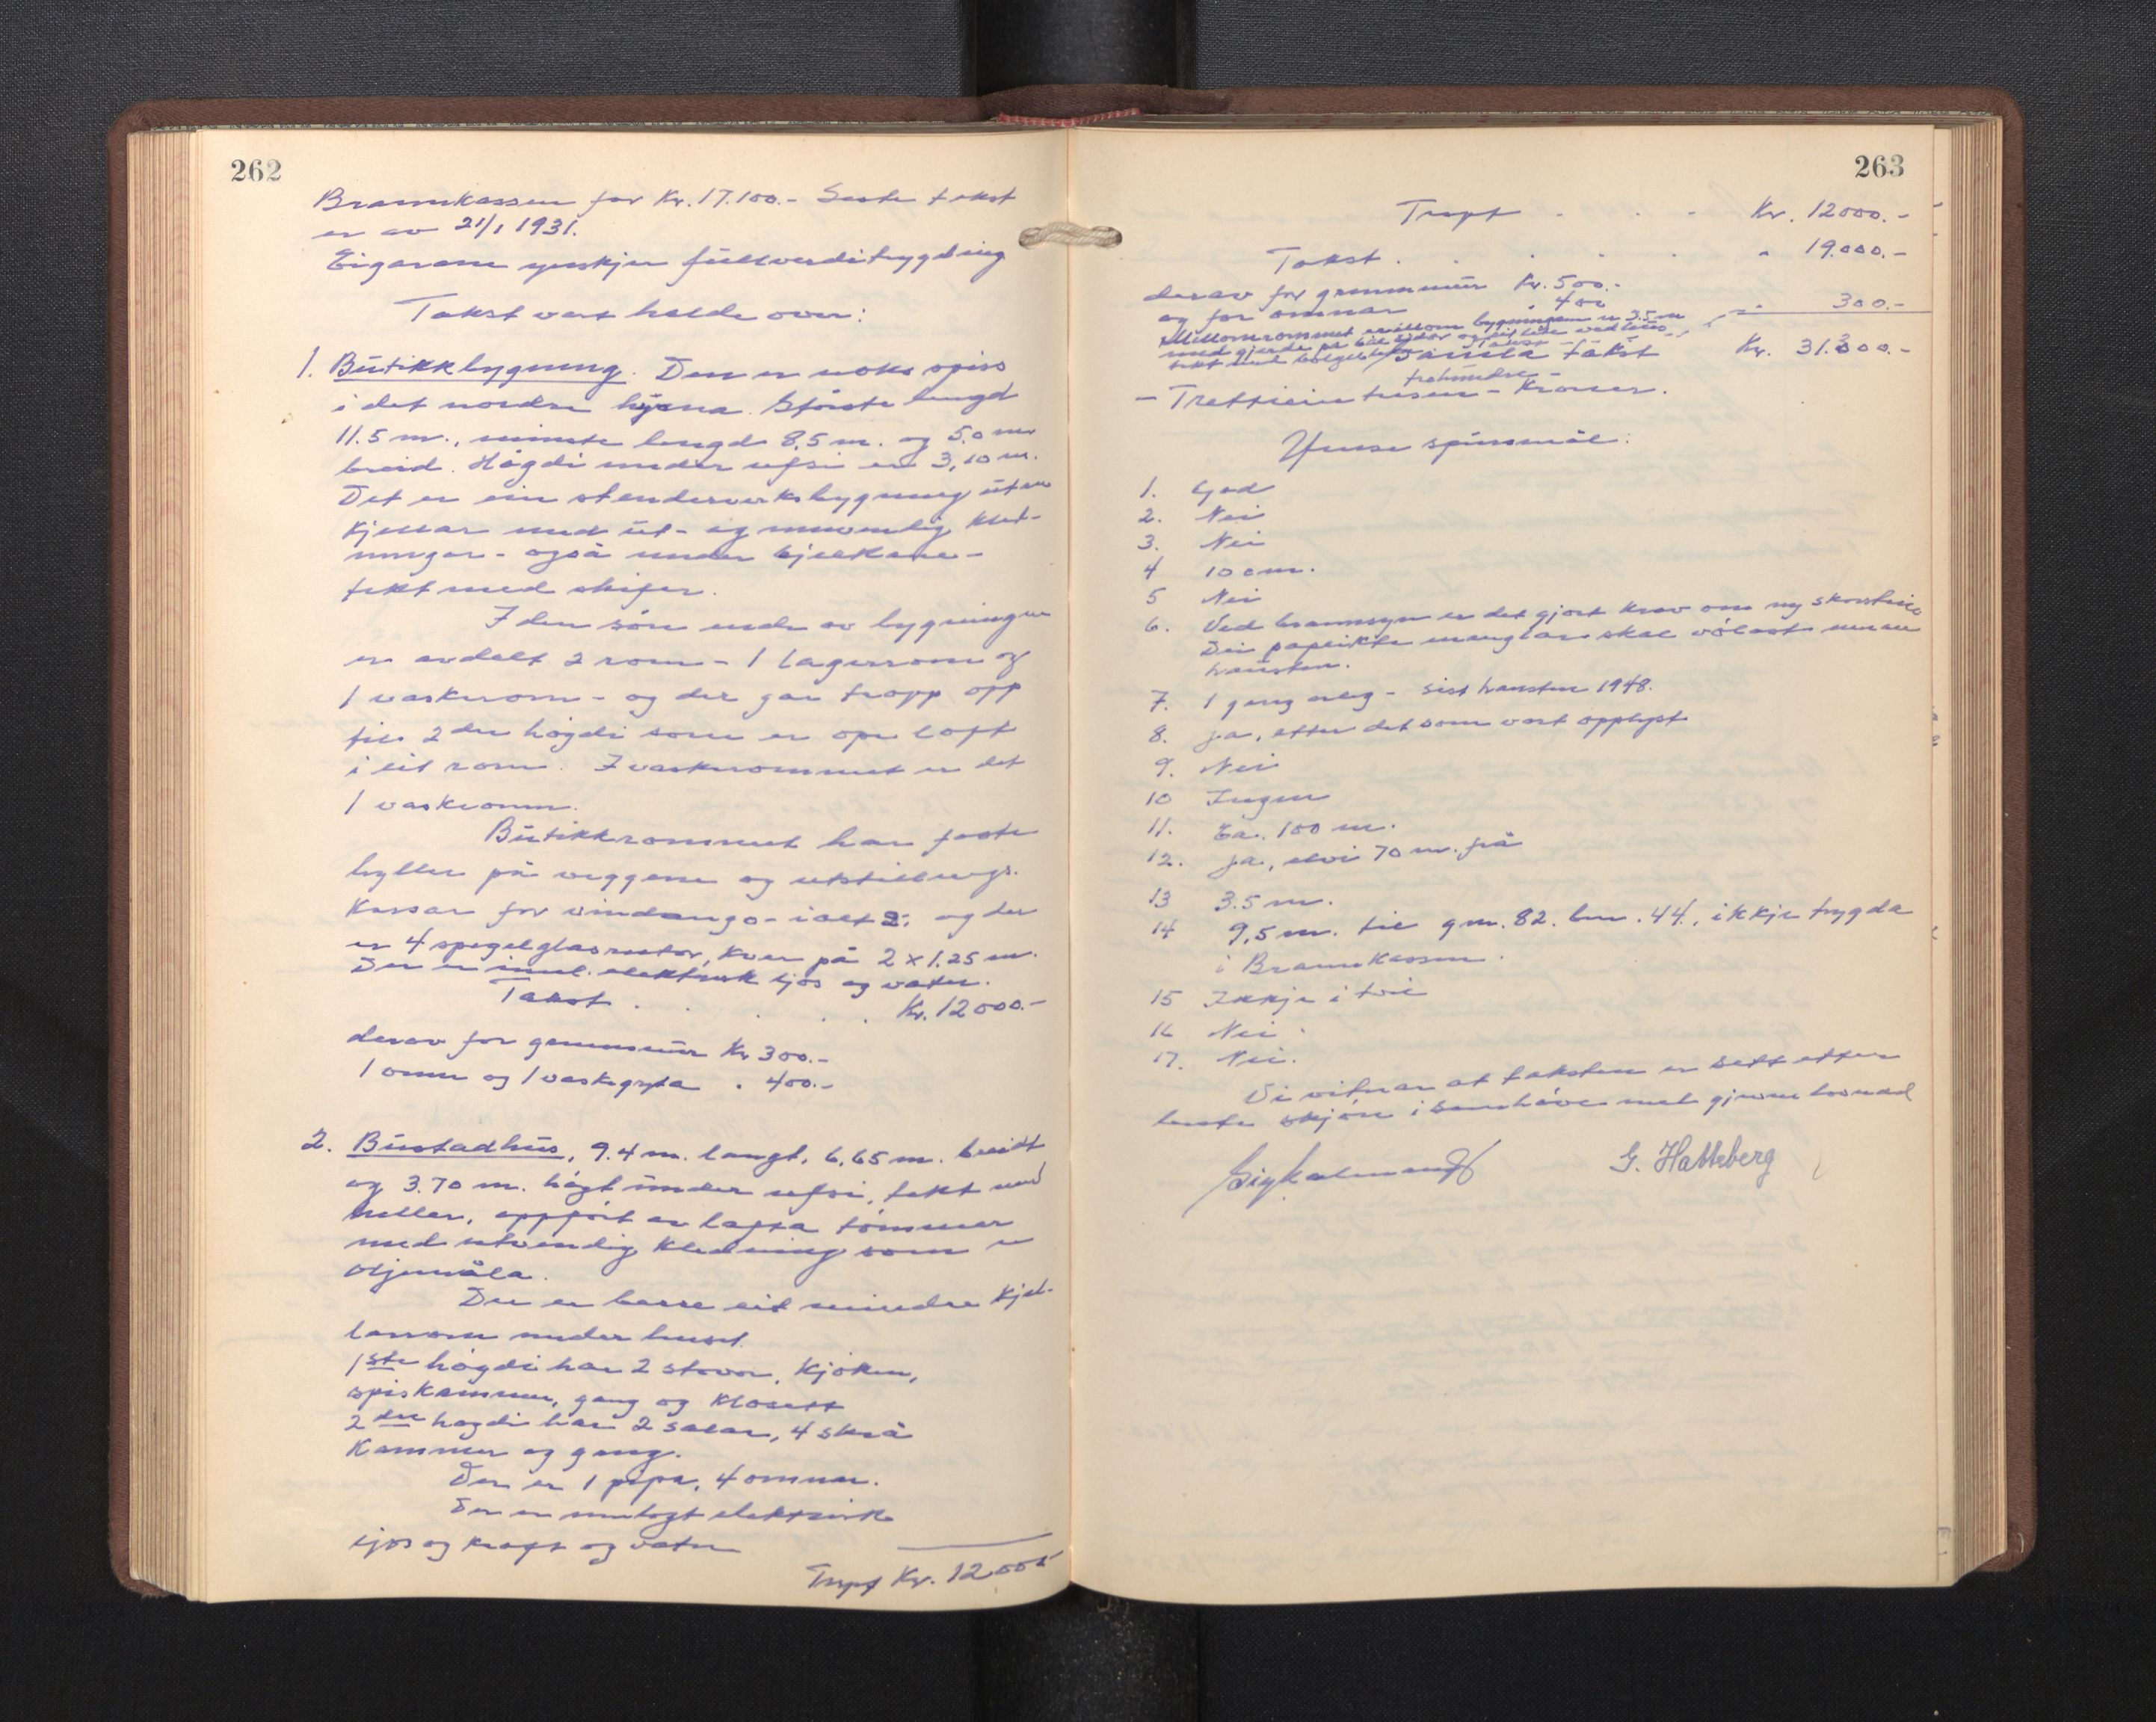 262
Brannkassen for Kr. 17.100.- Siste takst
er av 21/1 1931.
Eigarane ynskjer fullverditrygding
Takst vart halde over:
1. Butikkbygning. Den er noko spiss
i det nordre hyrna. Største lengd
11.5 m., minste lengd 8,5 m. og 5.0 m
breid. Høgdi under ufsi er 3,10 m.
Det er ein stenderverksbygning utan
kjellar med ut- og innvendig kled-
ningar - også under bjelkane -
tekt med skifer.
I den søn ende av bygningen
er avdelt 2 rom - 1 lagerrom og
1 vaskerom - og der gar tropp opp
til 2den høgdi som er ope loft
i eit rom. I vaskerommet er det
1 vaskeomn.
Butikkrommet har faste
hyller på veggene og utstillings-
kassar for vindaugo - i alt 2; og der
er 4 spegelglasrutor, kver på 2 x 1.25 m.
Der er innl. elektrisk ljos og vatn.
Takst . . . . . Kr. 12000.-
derav for grunnmur Kr 300.-
1 omn og 1 vaskegryta " 400.-
2. Bustadhus, 9.4 m. langt, 6,65 m. breidt
og 3.70 m. høgt under ufsi, tekt med
heller, oppført av lafta tømmer
med utvendig kledning som er
oljemåla.
Der er berre eit mindre kjel-
larrom under huset.
1ste høgdi har 2 stovor, kjøken,
spiskammer, gang og klosett
2dre høgdi har 2 salar, 4 skrå
kammer og gang.
Der er 1 pipa, 4 omnar.
Der er innlagt elektrisk
ljos og kraft og vatn
Trept Kr. 12000.-
263
Trept . . . Kr. 12000.-
Takst . . . . . " 19.000.-
derav for grunnmur Kr. 500.-
og for omnar " 400
Millomrommet millom bygningane er 3.5 m
med gjerde på båe sidor og eit lite vedhus
tekt med bølgeblekk Takst - " 300.-
Samla takst Kr. 31.300.-
trehundre -
- Trettiein tusen - Kroner.
Ymse spursmål:
1. God
2. Nei
3. Nei
4 10 cm.
5 Nei
6. Ved brannsyn er det gjort krav om ny skorstein
Dei papeikte manglar skal vølast innan
hausten.
7. 1 gang arleg - sist hausten 1948.
8. Ja, etter det som vart opplyst
9. Nei
10 Ingen
11. Ca. 100 m.
12. Ja, elvi 70 m. frå
13 3.5 m.
14 9,5 m. til gnr. 82. bnr. 44, ikkje trygda
i Brannkassen.
15 Ikkje i tvil
16 Nei
17. Nei.
Vi vitnar at taksten er sett etter
beste skjøn i samhøve med gjevne lovnad
G. Hatteberg